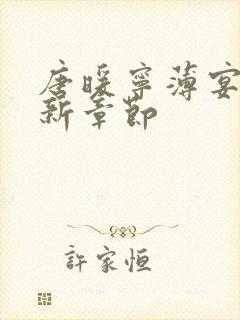 唐暖寧薄宴
新章節
許家恒